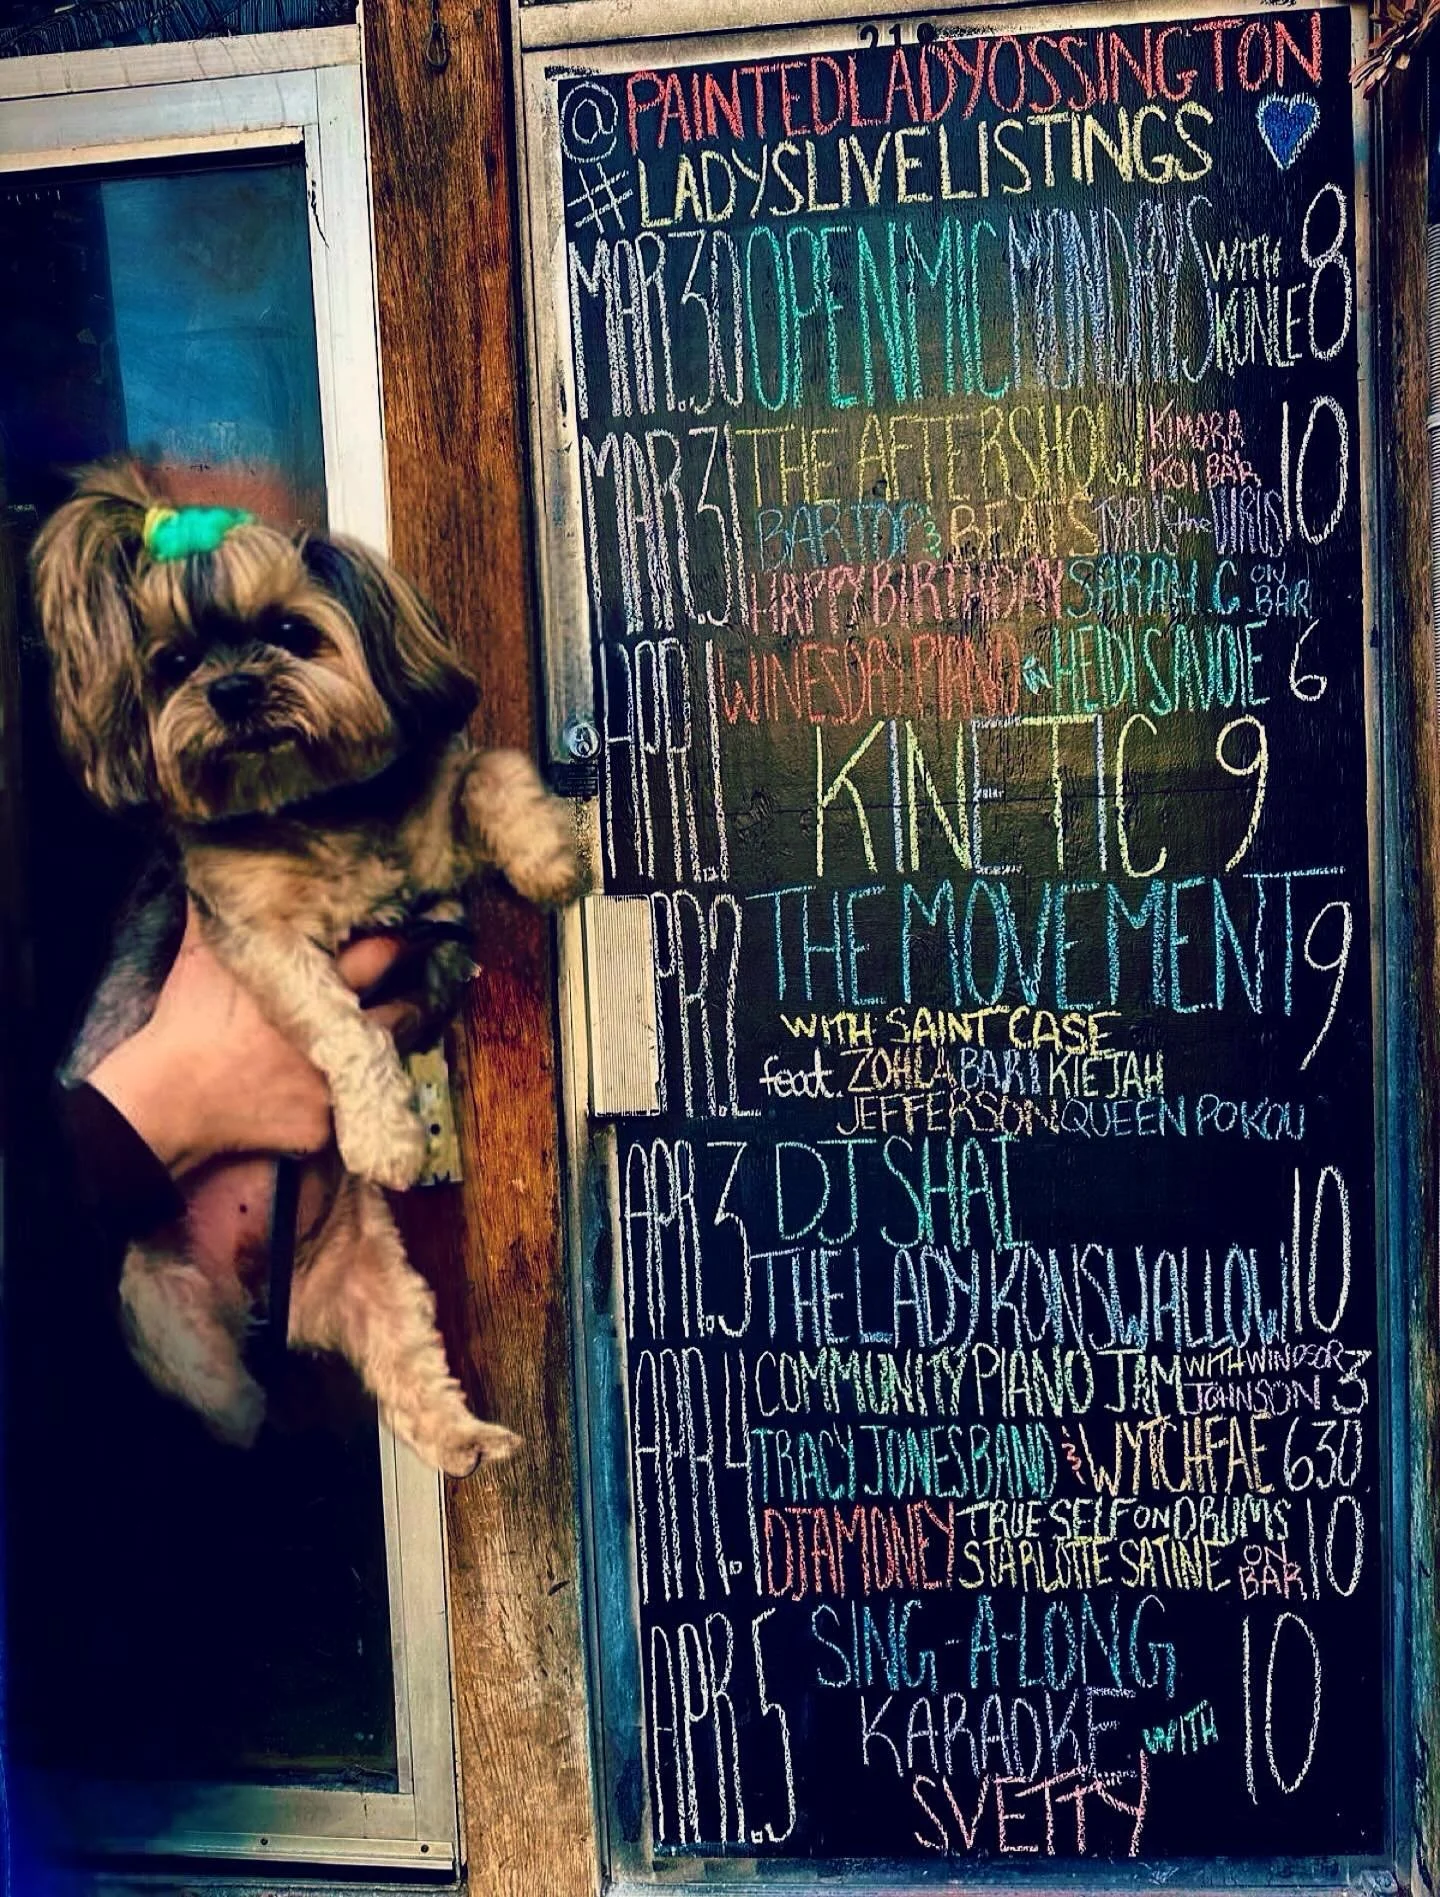 218
@PAINTEDLADYOSSINGTON
#LADYSLIVELISTINGS
MAR.30 OPEN MIC MONDAYS WITH KUNLE 8
MAR.31 THE AFTERSHOW KIMORA KOI BAR 10
BARTOP & BEATS TYRUS the VIRUS
HAPPY BIRTHDAY SARAH.G ON BAR
APR.1 WINESDAY PIANO w HEDI SAVOIE 6
KINETIC 9
APR.2 THE MOVEMENT 9
WITH SAINT CASE
feat. ZOHLA BARI KIEJAH
JEFFERSON QUEEN POKOU
APR.3 DJ SHAI 10
THE LADY KONSWALLOW
APR.4 COMMUNITY PIANO JAM WITH WINDSOR JOHNSON 3
TRACY JONES BAND & WYTCHFAE 630
DJAMONEY TRUE SELF ON DRUMS 10
STARLOTTE SATINE ON BAR
APR.5 SING-A-LONG 10
KARAOKE WITH
SVETTY